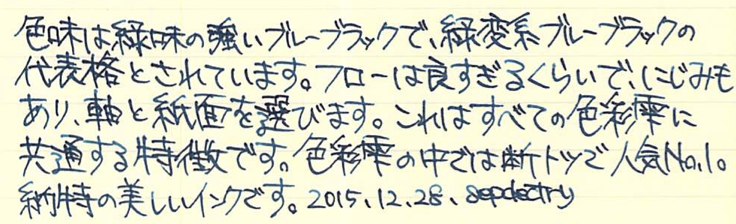 色味は緑味の強いブルーブラックで、緑変系ブルーブラックの
代表格とされています。フローは良すぎるくらいで、にじみも
あり、軸と紙面を選びます。これはすべての色彩雫に
共通する特徴です。色彩雫の中では断トツで人気No.1。
納得の美しいインクです。2015.12.28.